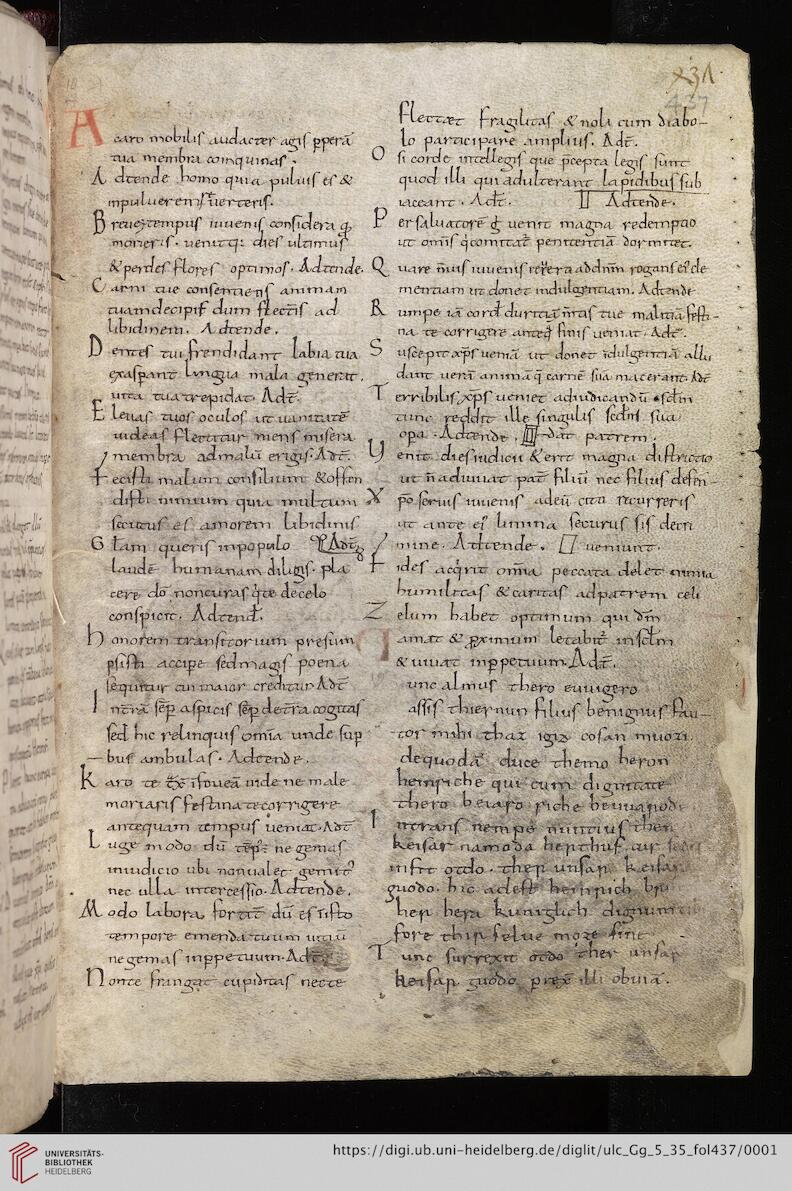 xʒı
437
A caro mobilis audacter agis p̱perā
tua membra coinquinas.
A dtende homo quia puluis es &
inpulueremr̄uerteris.
B reue÷tempus iuuenis considera q̨
morieris. uenitq: dies ultimus
& perdes flores optimos. Adtende.
C arni tue consentiens animam
tuamdecipis dum flectiis ad
libidinem. Adtende.
D entes tui frendidant labia tua
exaspant lingua mala generat.
uita tuatrepidat. Adt̄.
E leuas tuos oculos ut uanitatē
uideas flectitur mens misera
membra admalū erigis. Adt̄.
F ecisti malum consilium & offen
disti nimium quia multum
secutus es amorem libidinis
G lam queris inpopulo Adt̄
laudē humanam diligis. pla
cere dō noncuras q̇te decelo
conspicit. Adtend̄.
H onorem transitorium presum
psisti accipe sedmagis poena
sequitur cui maior creditur Adt̄
I ntrā sēp aspicis sēp det̄ra cogitas
sed hic relinquis om̄ia unde sup
bus ambulas. Adtende.
K aro te īfoueā uide ne male
moriaris festina te corrigere
antequam tempus ueniat. Adt̄
L uge modo dū ne gemas
iniudicio ubi nonualet gemit᷒
nec ulla intercessio. Adtende.
M odo labora fortit̄ dū es īisto
tempore emenda tuum uitiū
ne gemas inp̱petuum. Adt̄.
N onte frangat cupiditas necte
flectæt fragilitas & noli cum diabo-
lo participare amplius. Adt̄.
O si corde intellegis que p̄cepta legis sunt
quod illi qui adulterant lapidibus sub
iaceant. Adt̄. Adtende.
P er saluatorē ḡ uenit magna redemptio
ut om̄is q̇comitat̄ penitentiā dormitet.
Q uare m̄uis iuuenis reuera addn̄m rogans ei᷒ cle
mentiam ut donet indulgentiam. Adtende
R umpe iā cord̄ duritiā m̄tis tue malitiā festi-
na te corrigere anteq̄ finis ueniat. Adt̄.
S uscepit xp̄s ueniā ut donet īdulgentiā allu
dant uerā animā q̇ carnē suā macerant. Adt̄
T erribilis, xp̄s ueniet adiudicandū sclm̄
tunc reddit ille singulis sedm̄ sua
opa. Adtende. dāt patrem.
Y enit dies iudicii & erit magna districtio
ut n̄ adiuuat pat̄ filiū nec filius defen-
X po serius iuuenis adeū cito recurreris
ut ante ei᷒ limina securus sis decri
mine. Adtende. ueniunt.
F ides acq̇rit om̄ia peccata delet omnia
humilitas & caritas adpatrem celi
Z elum habet optimum qui dm̄
amat & p̱ximum letabit᷒ insclm̄
& uiuat inp̱petuum. Adt̄.
N unc almus thero euuigero
assis thiernun filius benignus fau-
tor mihi thaz igiz cosan muozi.
dequodā duce themo heron
heinriche qui cum dignitate
thero beiaro riche beuuarode.
I ntrans nempe nuntius then
keisar namoda her thus. cur sedes
infit otdo. ther unsar keisar
guodo. hic adest heinrich bru
her hera kuniglich dignum tibi
fore thir selue moze sine
T unc surrexit otdo ther unsar
keisar guodo prexit illi obuiā.
UNIVERSITÄTS-
BIBLIOTHEK
HEIDELBERG
https://digi.ub.uni-heidelberg.de/diglit/ulc_Gg_5_35_fol437/0001